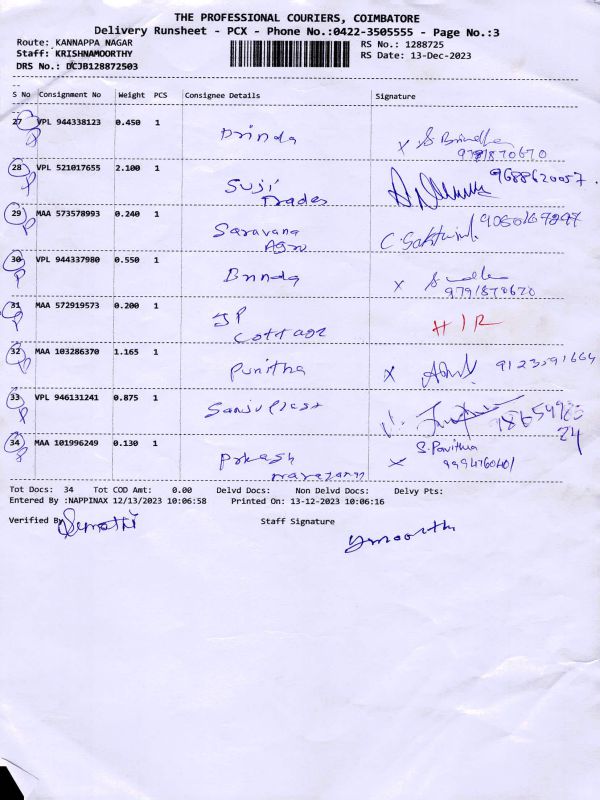 THE PROFESSIONAL COURIERS, COIMBATORE
Delivery Runsheet - PCX - Phone No.:0422-3505555 - Page No.:3
Route: KANNAPPA NAGAR RS No.: 1288725
Staff: KRISHNAMOORTHY RS Date: 13-Dec-2023
DRS No.: DCJB128872503
S No Consignment No Weight PCS Consignee Details Signature
27 VPL 944338123 0.450 1 Drinda x S Brindha
P 9791870670
28 VPL 521017655 2.100 1 Suji 9688620057.
P Trades
29 MAA 573578993 0.240 1 Saravana
P Agro
30 VPL 944337980 0.550 1 Brinda x
P 9791870670
31 MAA 572919573 0.200 1 JP H I R
P Cottage
32 MAA 103286370 1.165 1 Punitha x
P
33 VPL 946131241 0.875 1 Sanju Plast
P
34 MAA 101996249 0.130 1 Prkash S. Pavithra
P narayanan x 9994760401
Tot Docs: 34 Tot COD Amt: 0.00 Delvd Docs: Non Delvd Docs: Delvy Pts:
Entered By :NAPPINAX 12/13/2023 10:06:58 Printed On: 13-12-2023 10:06:16
Verified By Staff Signature
ymoorthi